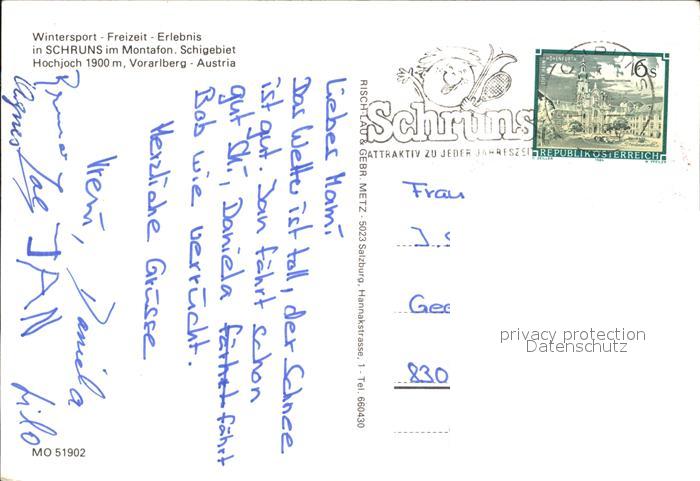 Wintersport - Freizeit - Erlebnis
in SCHRUNS im Montafon. Schigebiet
Hochjoch 1900 m, Vorarlberg - Austria
Liebes Mami
Das Wetter ist toll, der Schnee
ist gut. Jan fährt schon
gut Ski, Daniela fährt
Bob wie verrückt.
Herzliche Grüsse
Daniela
JAN
Lilo
MO 51902
RISCH-LAU & GEBR. METZ - 5023 Salzburg, Hannakstrasse, 1 - Tel. 660430
Schruns
ATTRAKTIV ZU JEDER JAHRESZEIT
6s
REPUBLIK ÖSTERREICH
Frau
J. S
Gee
830
privacy protection
Datenschutz